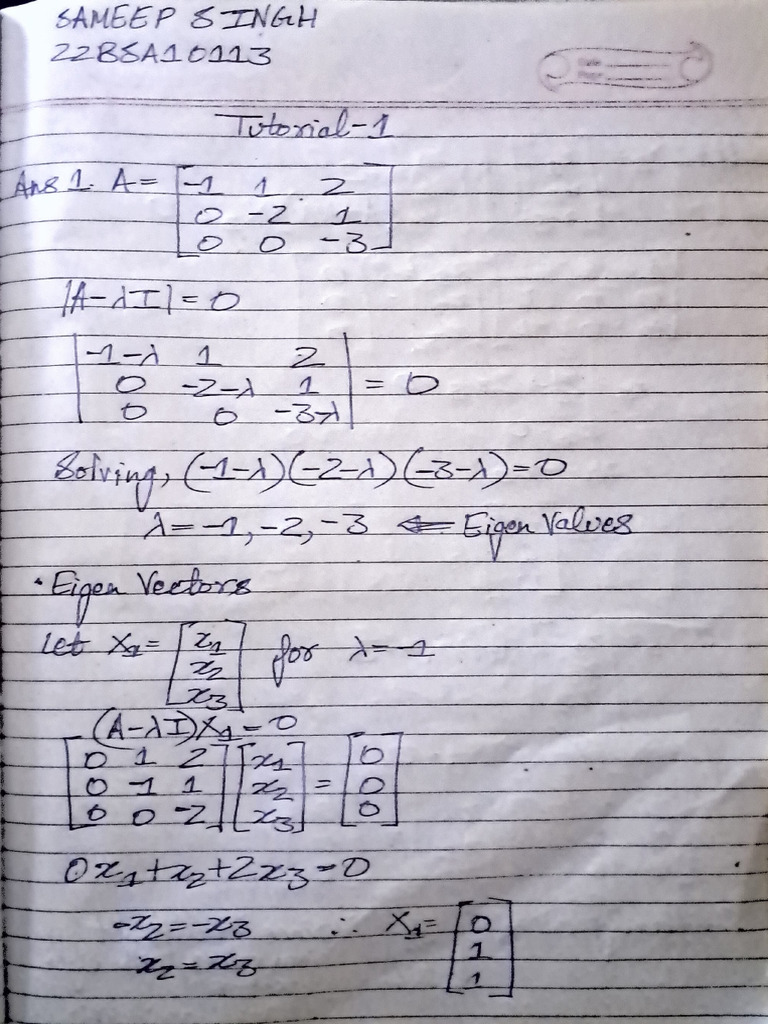 SAMEEP SINGH
22BSA10113
Tutorial-1
Ans 1. A = [-1 1 2
0 -2 1
0 0 -3]
|A-λI| = 0
|-1-λ 1 2
0 -2-λ 1
0 0 -3-λ| = 0
Solving, (-1-λ)(-2-λ)(-3-λ)=0
λ = -1, -2, -3 ⇐ Eigen Values
• Eigen Vectors
Let X1 = [x1
x2
x3] for λ = -1
(A-λI)X1 = 0
[0 1 2
0 -1 1
0 0 -2] [x1
x2
x3] = [0
0
0]
0x1+x2+2x3=0
-x2=-x3
x2=x3
∴ X1= [0
1
1]